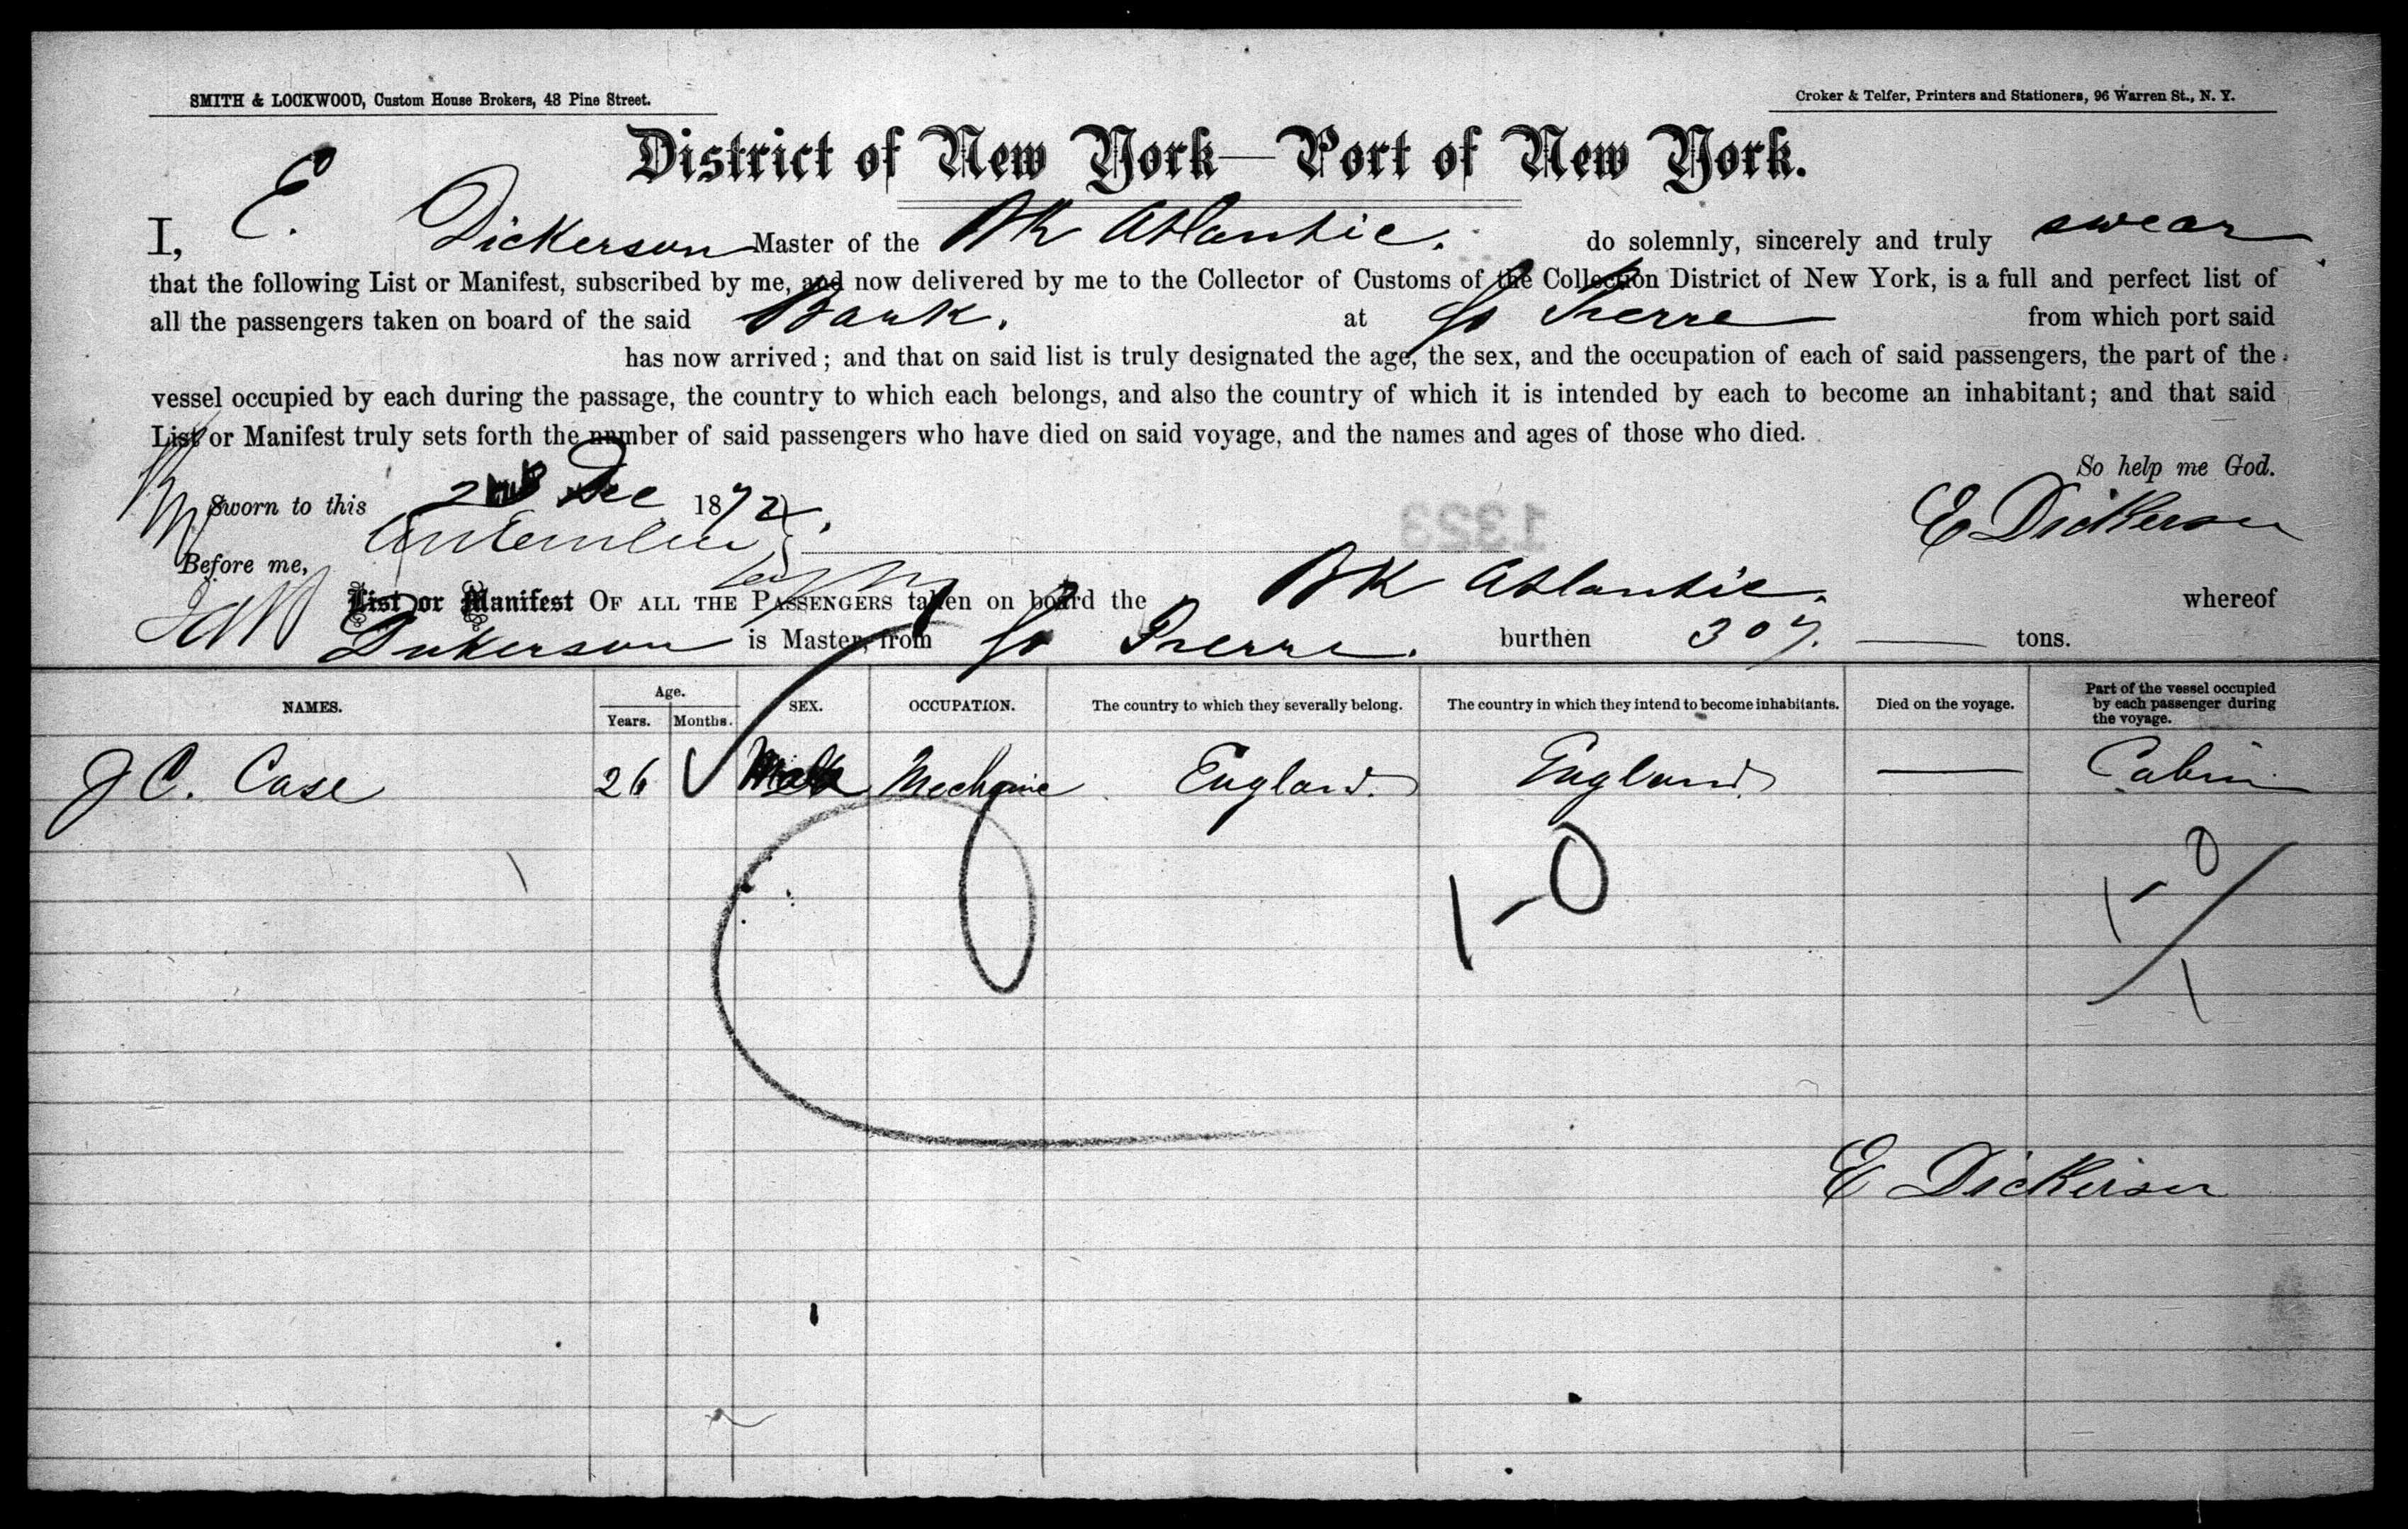 SMITH & LOCKWOOD, Custom House Brokers, 48 Pine Street.
Croker & Telfer, Printers and Stationers, 96 Warren St., N. Y.
District of New York—Port of New York.
I, E. Dickerson Master of the Bk Atlantic. do solemnly, sincerely and truly swear
that the following List or Manifest, subscribed by me, and now delivered by me to the Collector of Customs of the Collection District of New York, is a full and perfect list of
all the passengers taken on board of the said Bark. at St Pierre from which port said
has now arrived; and that on said list is truly designated the age, the sex, and the occupation of each of said passengers, the part of the
vessel occupied by each during the passage, the country to which each belongs, and also the country of which it is intended by each to become an inhabitant; and that said
List or Manifest truly sets forth the number of said passengers who have died on said voyage, and the names and ages of those who died.
So help me God.
Sworn to this 2 Dec 1872
E Dickerson
1323
Before me,
List or Manifest OF ALL THE PASSENGERS taken on board the Bk Atlantic. whereof
Dickerson is Master, from St Pierre. burthen 307. — tons.
NAMES. Age. Years. Months. SEX. OCCUPATION. The country to which they severally belong. The country in which they intend to become inhabitants. Died on the voyage. Part of the vessel occupied by each passenger during the voyage.
J C. Case 26 Male Mechanic England. England — Cabin
1-0
1-0
1
E Dickerson